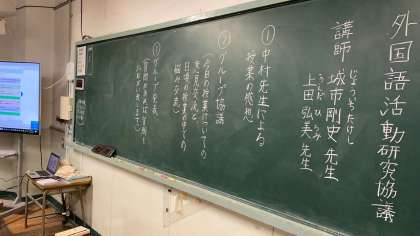 外国語活動研究協議
講師
じょういち たけし
城市剛史先生
うえだ ひろみ
上田弘美先生
①中村先生による
授業の感想
②グループ協議
(今日の授業についての
意見交流と
日頃の授業の中での
悩み交流)
③グループ発表